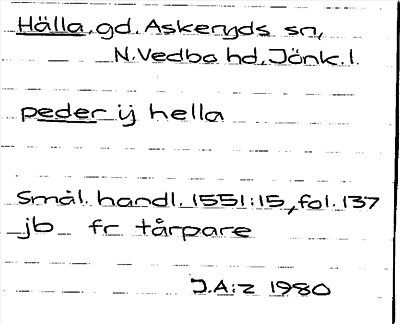 Hälla, gd. Askeryds sn,
N. Vedbo hd, Jönk. l.
peder ij hella
Smål. handl. 1551:15, fol. 137
jb fr tårpare
J.A:z 1980